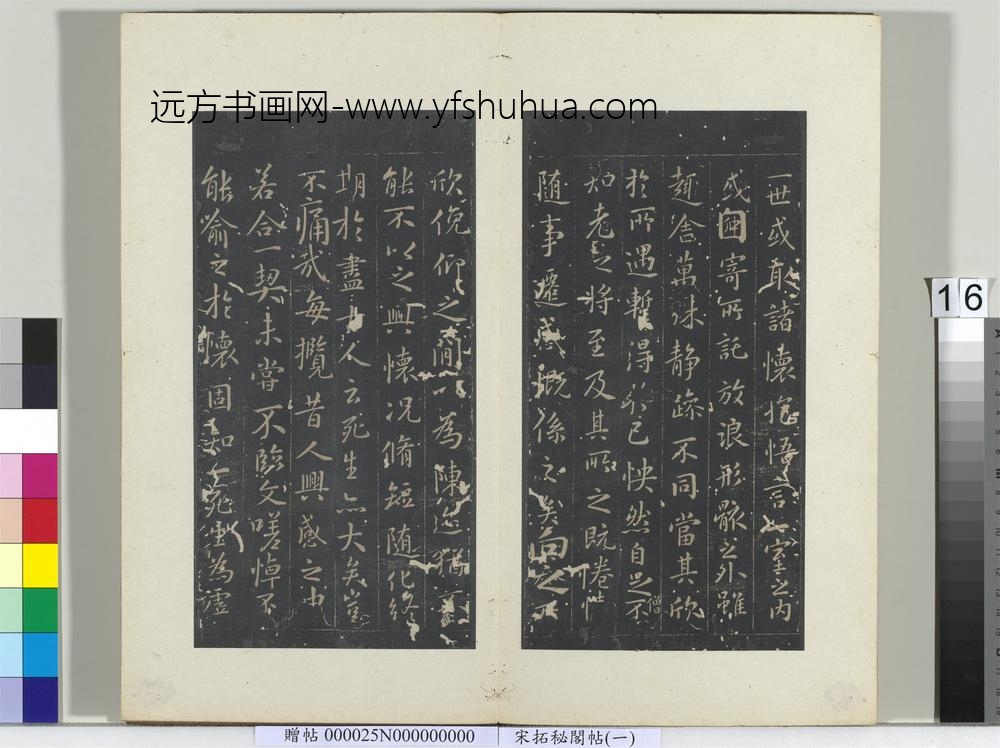 远方书画网-www.yfshuhua.com
一世或取諸懷抱悟言一室之內
或因寄所託放浪形骸之外雖
趣舍萬殊静躁不同當其欣
於所遇暫得於己怏然自足不
僧
知老之將至及其所之既惓情
随事遷感慨係之矣向之所
欣俛仰之間以為陳迹猶不
能不以之興懷況脩短随化終
期於盡古人云死生亦大矣豈
不痛哉每攬昔人興感之由
若合一契未嘗不臨文嗟悼不
能喻之於懷固知一死生為虛
16
贈帖 000025N000000000
宋拓秘閣帖(一)